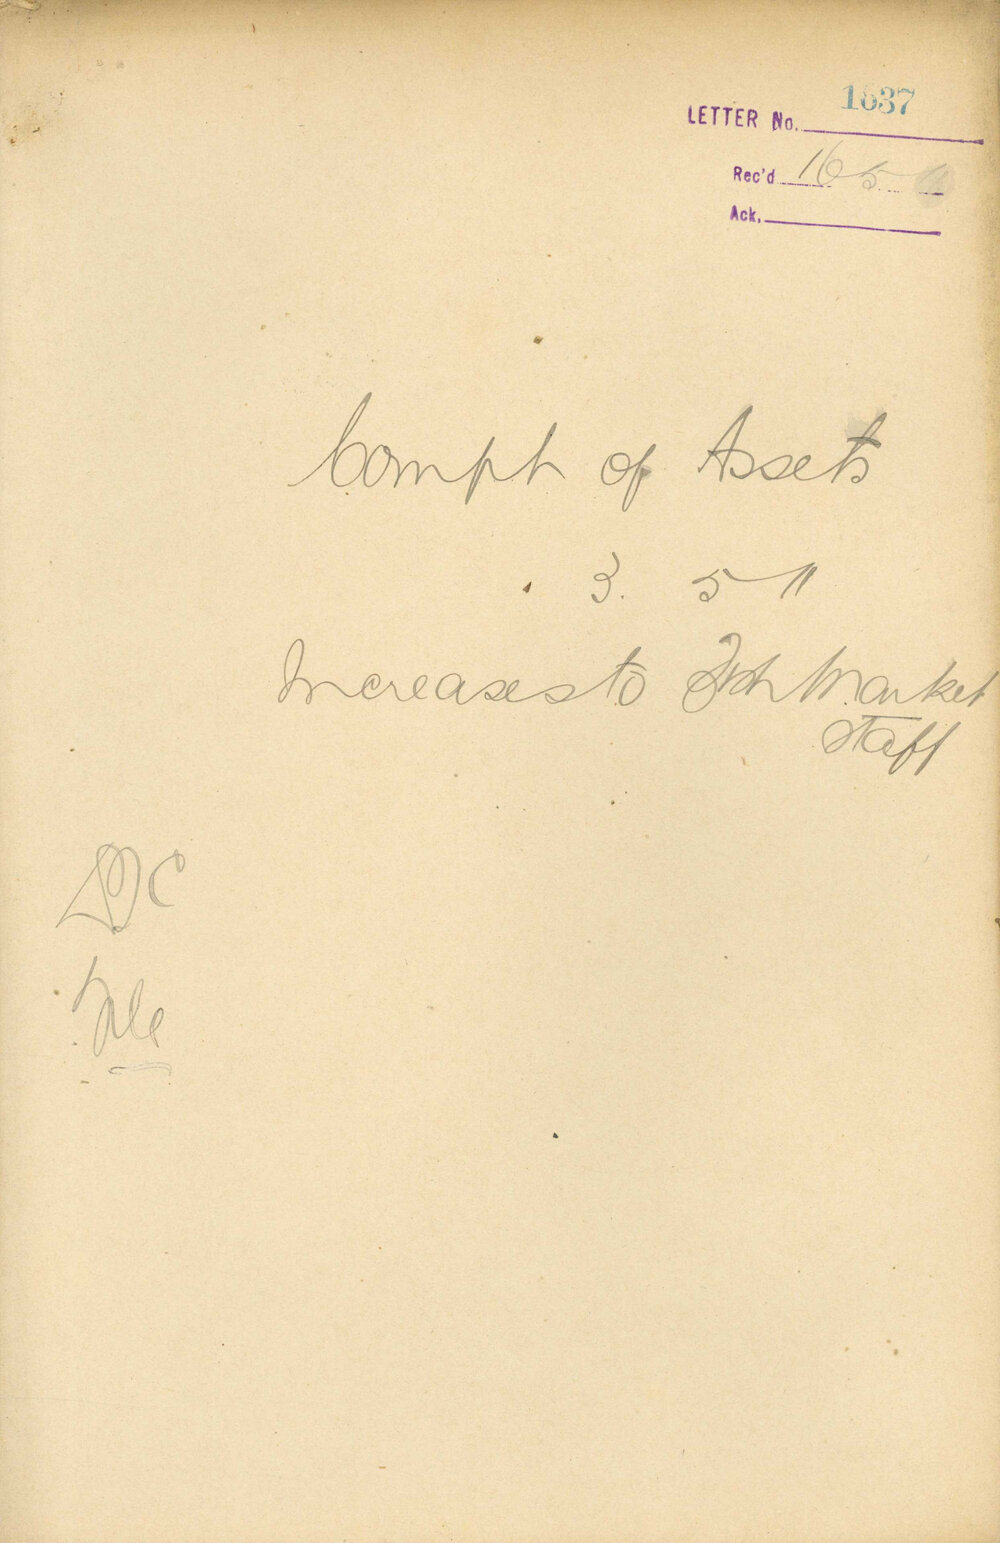 1637
LETTER No.
Rec'd 16 5 11
Ack.
Compt of Assets
3. 5 11
Increases to Fish Market
Staff
C
File